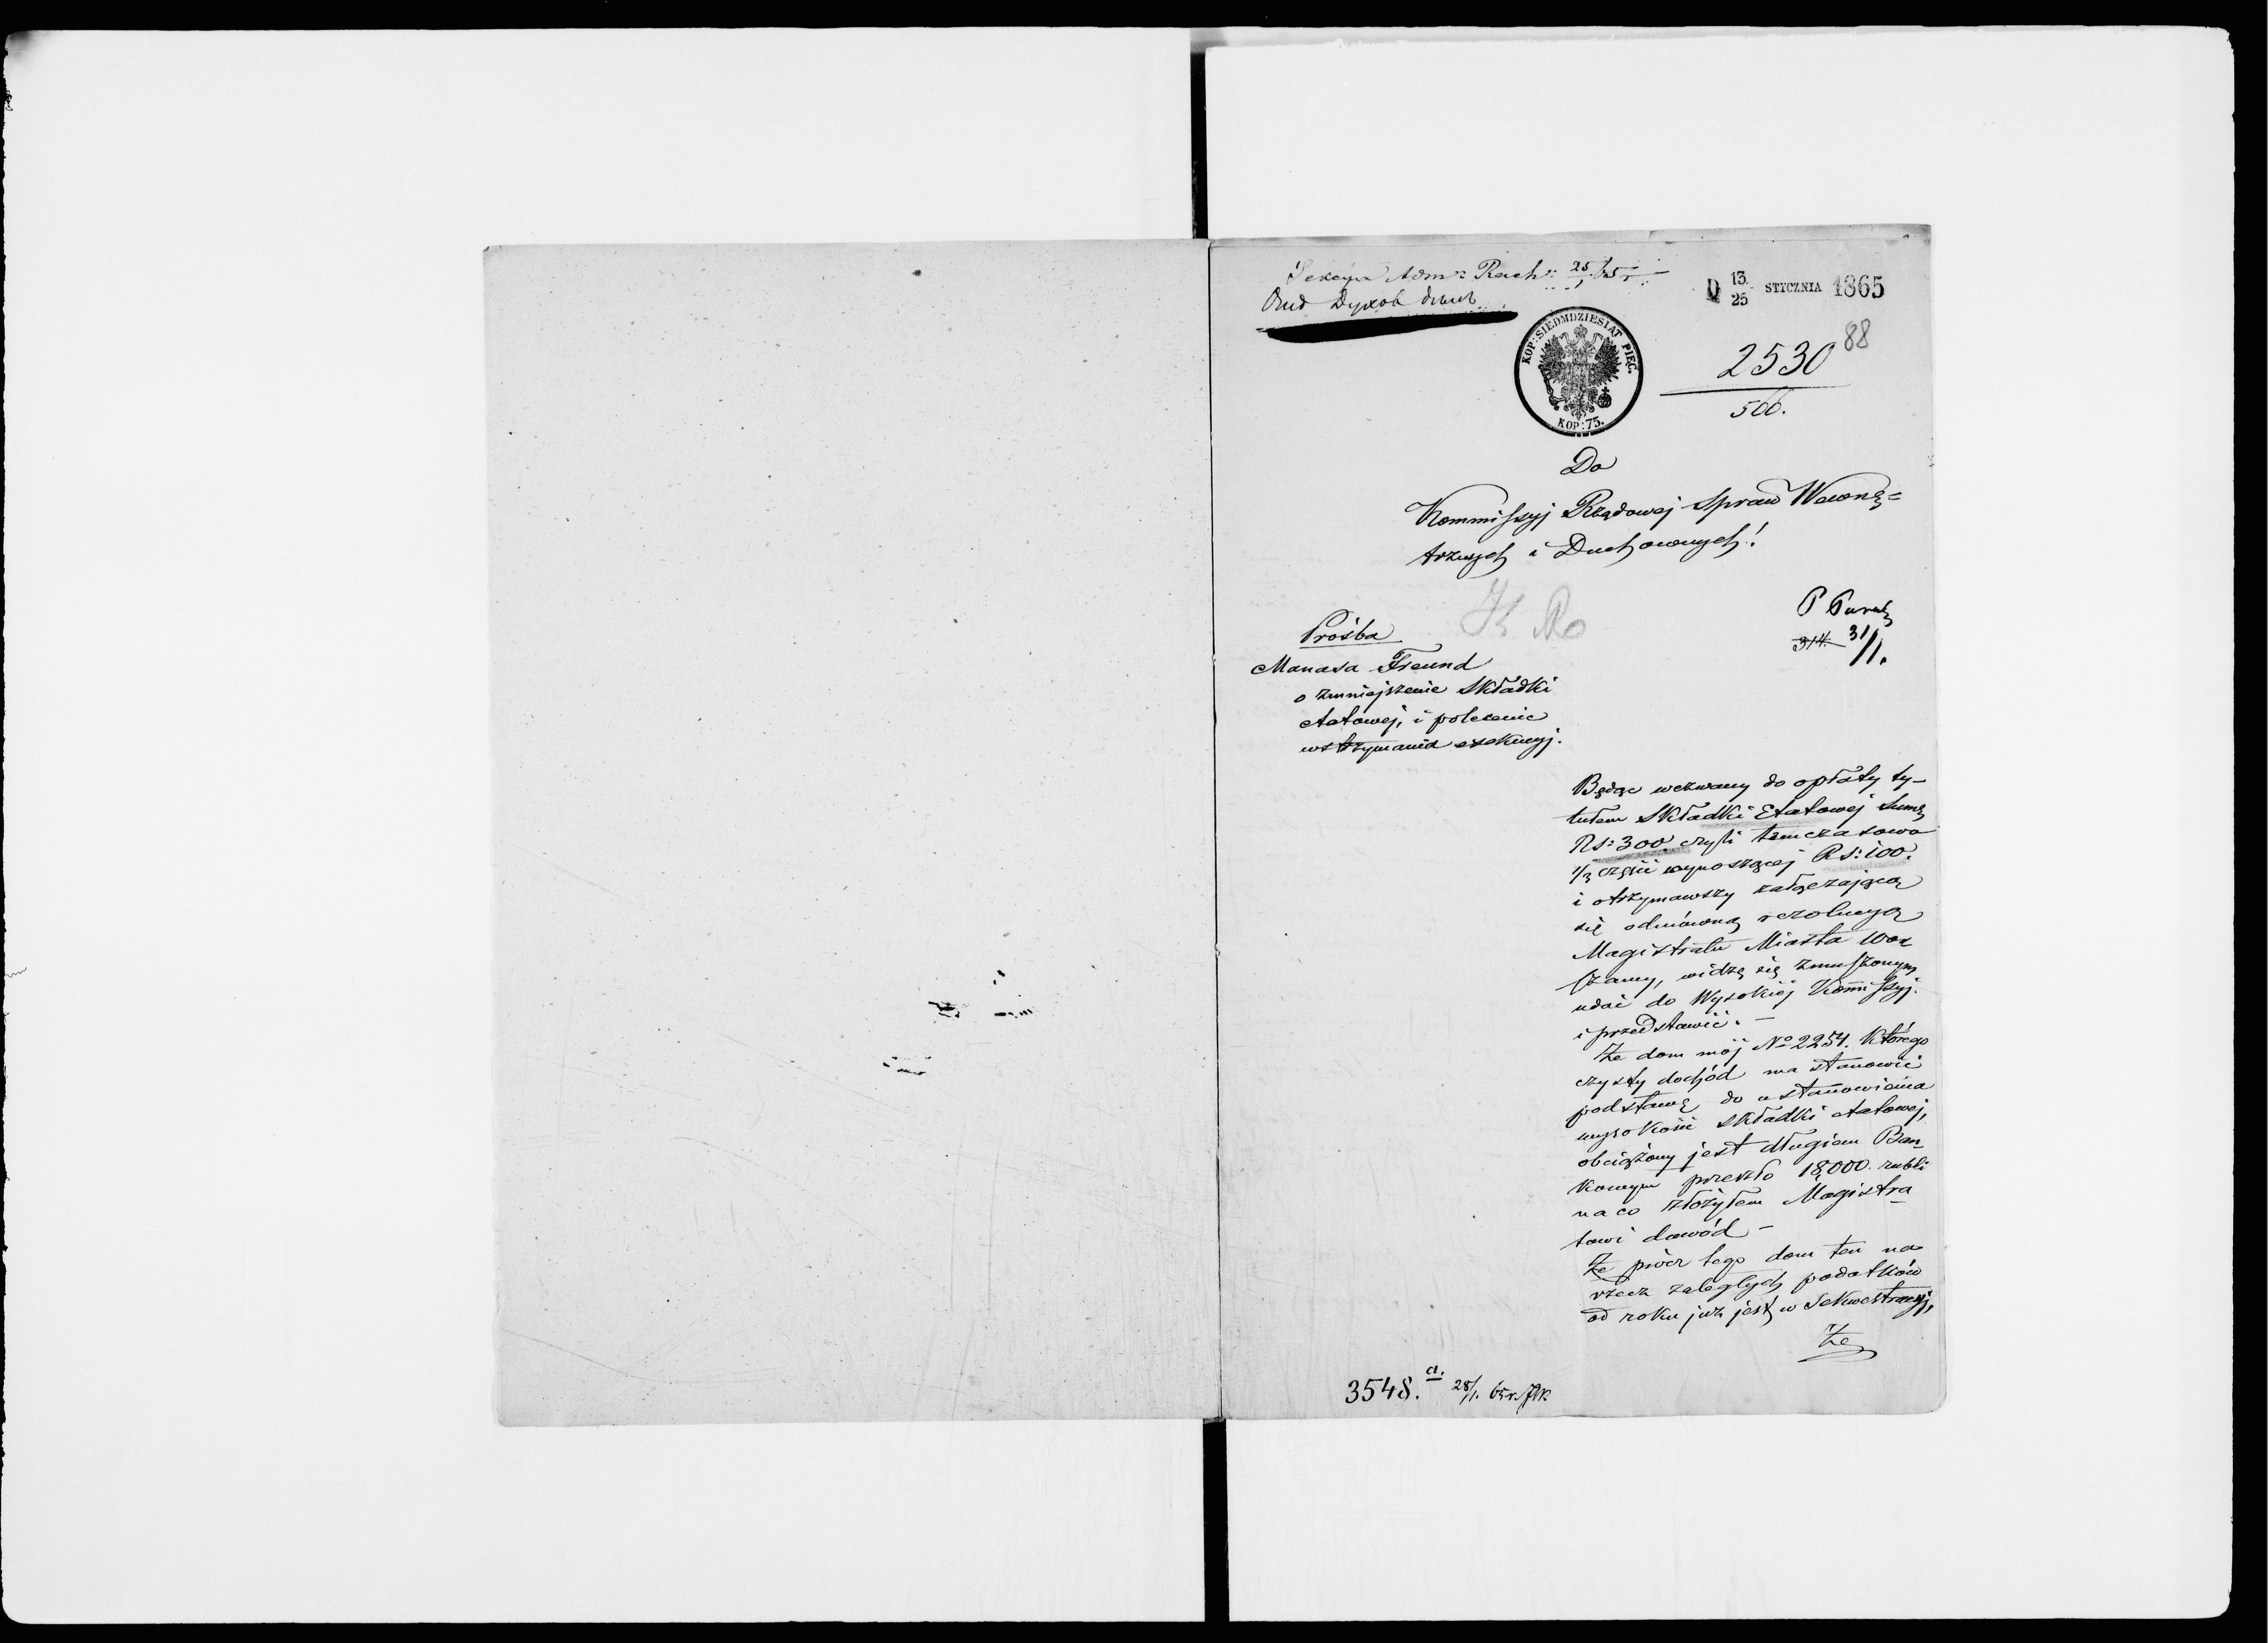 Sekcya Adm: Rach: 25/1 65 r
D 13/25 STYCZNIA 1865
KOP: SIEDMDZIESIAT PIĘĆ.
KOP: 75.
88
2530
506.
Do
Kommissyj Rządowej Spraw Wewnę=
trznych i Duchownych!
P
314. 31/1.
Prośba
Manasa Freund
o zmniejszenie Składki
etatowej, i polecenie
wstrzymania exekucyj.
Będąc wezwany do opłaty ty-
tułem Składki Etatowej summę
Rs: 300. czyli tymczasowo
1/3 części wynoszącej Rs: 100.
i otrzymawszy załączającą
się odmówną rezolucyą
Magistratu Miasta War
szawy, widzę się zmuszonym
udać do Wysokiej Kommissyj
i przedstawić. —
Że dom mój No 2254. którego
czysty dochód ma stanowić
podstawę do ustanowienia
wysokości składki etatowej,
obciążony jest długiem Ban
kowym przeszło 18,000 rubli
na co złożyłem Magistra
towi dowód —
Że prócz tego dom ten na
rzecz zaległych podatków
od roku już jest w Sekwestracyj,
Że
3548. a. 28/1. 65 r.